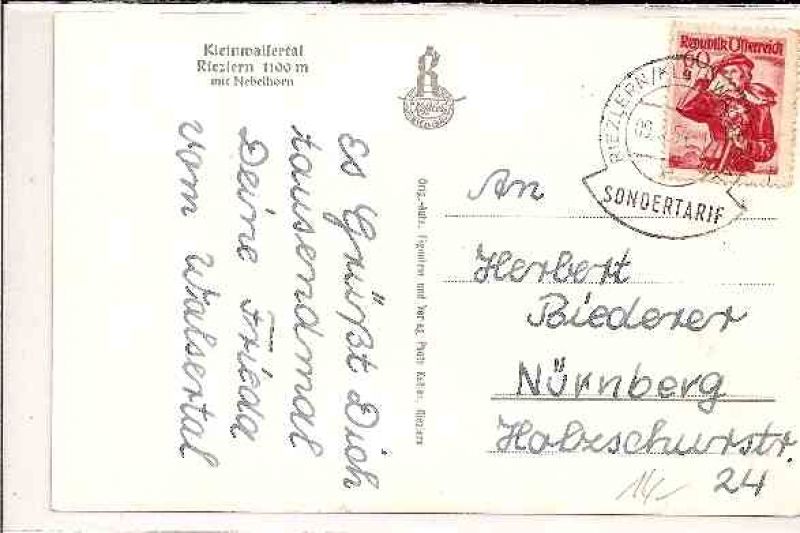 Kleinwalsertal
Riezlern 1100 m
mit Nebelhorn
Es Grüßt Dich
tausendmal
Deine Frieda
vom Walsertal
Orig.-Aufn. Eigentum und Verlag Photo Keßler, Riezlern
Republik Österreich
60
RIEZLERN/KL. W
09. 54
SONDERTARIF
An
Herbert
Biederer
Nürnberg
Holzschurstr.
24
14/-